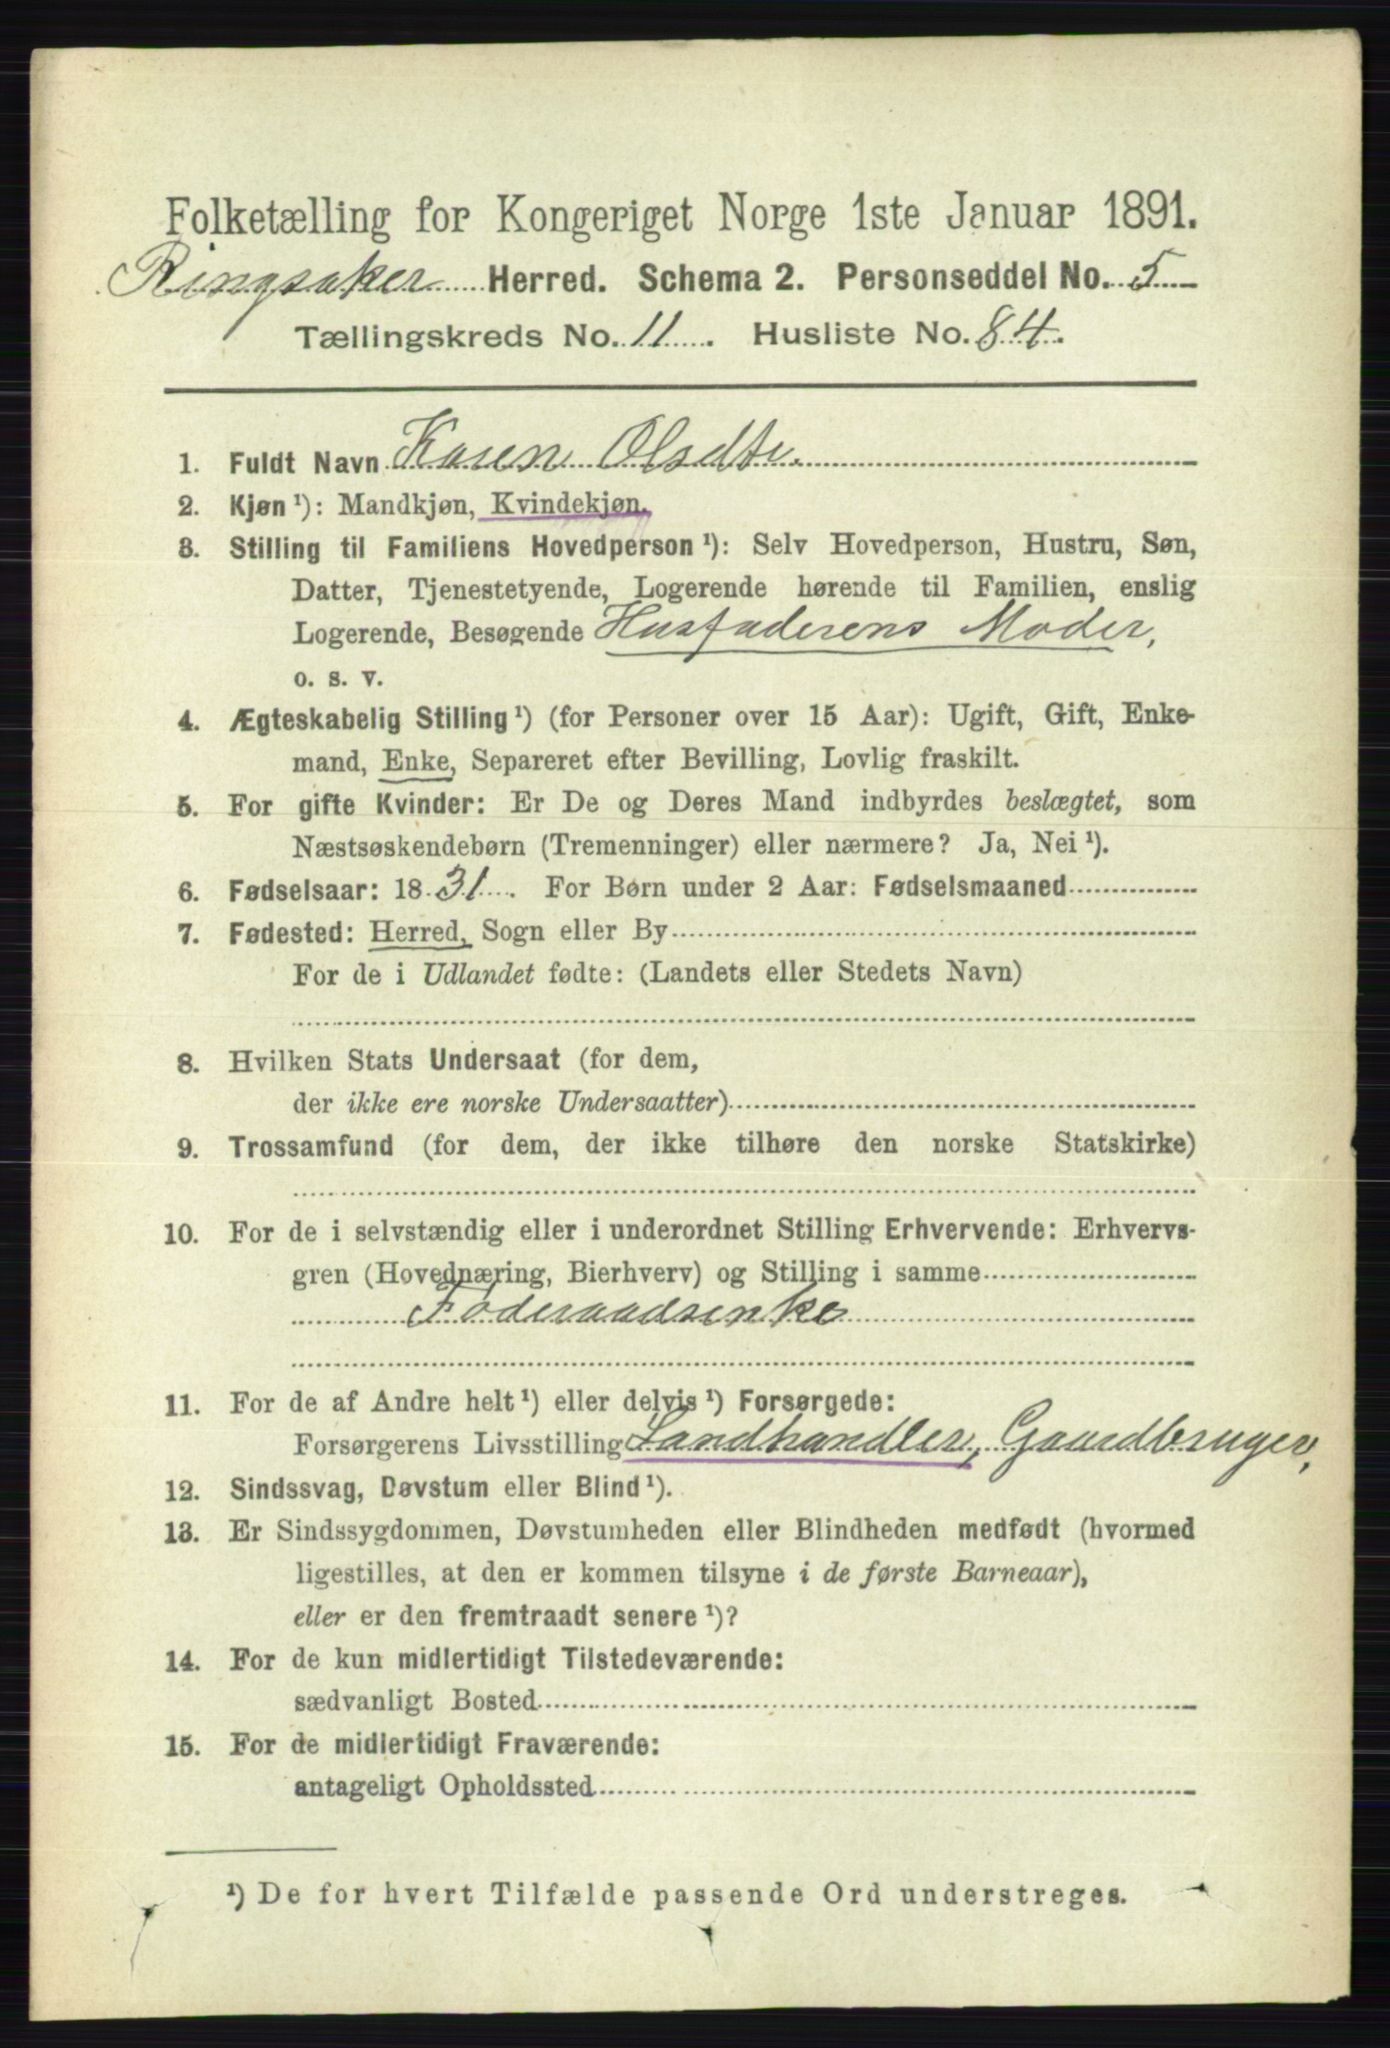 Folketælling for Kongeriget Norge 1ste Januar 1891.
Ringsaker Herred. Schema 2. Personseddel No. 5
Tællingskreds No. 11. Husliste No. 84.
1. Fuldt Navn Karen Olsdtr.
2. Kjøn ¹): Mandkjøn, Kvindekjøn.
3. Stilling til Familiens Hovedperson ¹): Selv Hovedperson, Hustru, Søn,
Datter, Tjenestetyende, Logerende hørende til Familien, enslig
Logerende, Besøgende Husfaderens Moder,
o. s. v.
4. Ægteskabelig Stilling ¹) (for Personer over 15 Aar): Ugift, Gift, Enke-
mand, Enke, Separeret efter Bevilling, Lovlig fraskilt.
5. For gifte Kvinder: Er De og Deres Mand indbyrdes beslægtet, som
Næstsøskendebørn (Tremenninger) eller nærmere? Ja, Nei ¹).
6. Fødselsaar: 1831. For Børn under 2 Aar: Fødselsmaaned
7. Fødested: Herred, Sogn eller By
For de i Udlandet fødte: (Landets eller Stedets Navn)
8. Hvilken Stats Undersaat (for dem,
der ikke ere norske Undersaatter)
9. Trossamfund (for dem, der ikke tilhøre den norske Statskirke)
10. For de i selvstændig eller i underordnet Stilling Erhvervende: Erhvervs-
gren (Hovednæring, Bierhverv) og Stilling i samme
Foderaadsenke
11. For de af Andre helt ¹) eller delvis ¹) Forsørgede:
Forsørgerens Livsstilling Landhandler, Gaardbruger,
12. Sindssvag, Døvstum eller Blind ¹).
13. Er Sindssygdommen, Døvstumheden eller Blindheden medfødt (hvormed
ligestilles, at den er kommen tilsyne i de første Barneaar),
eller er den fremtraadt senere ¹)?
14. For de kun midlertidigt Tilstedeværende:
sædvanligt Bosted
15. For de midlertidigt Fraværende:
antageligt Opholdssted
¹) De for hvert Tilfælde passende Ord understreges.